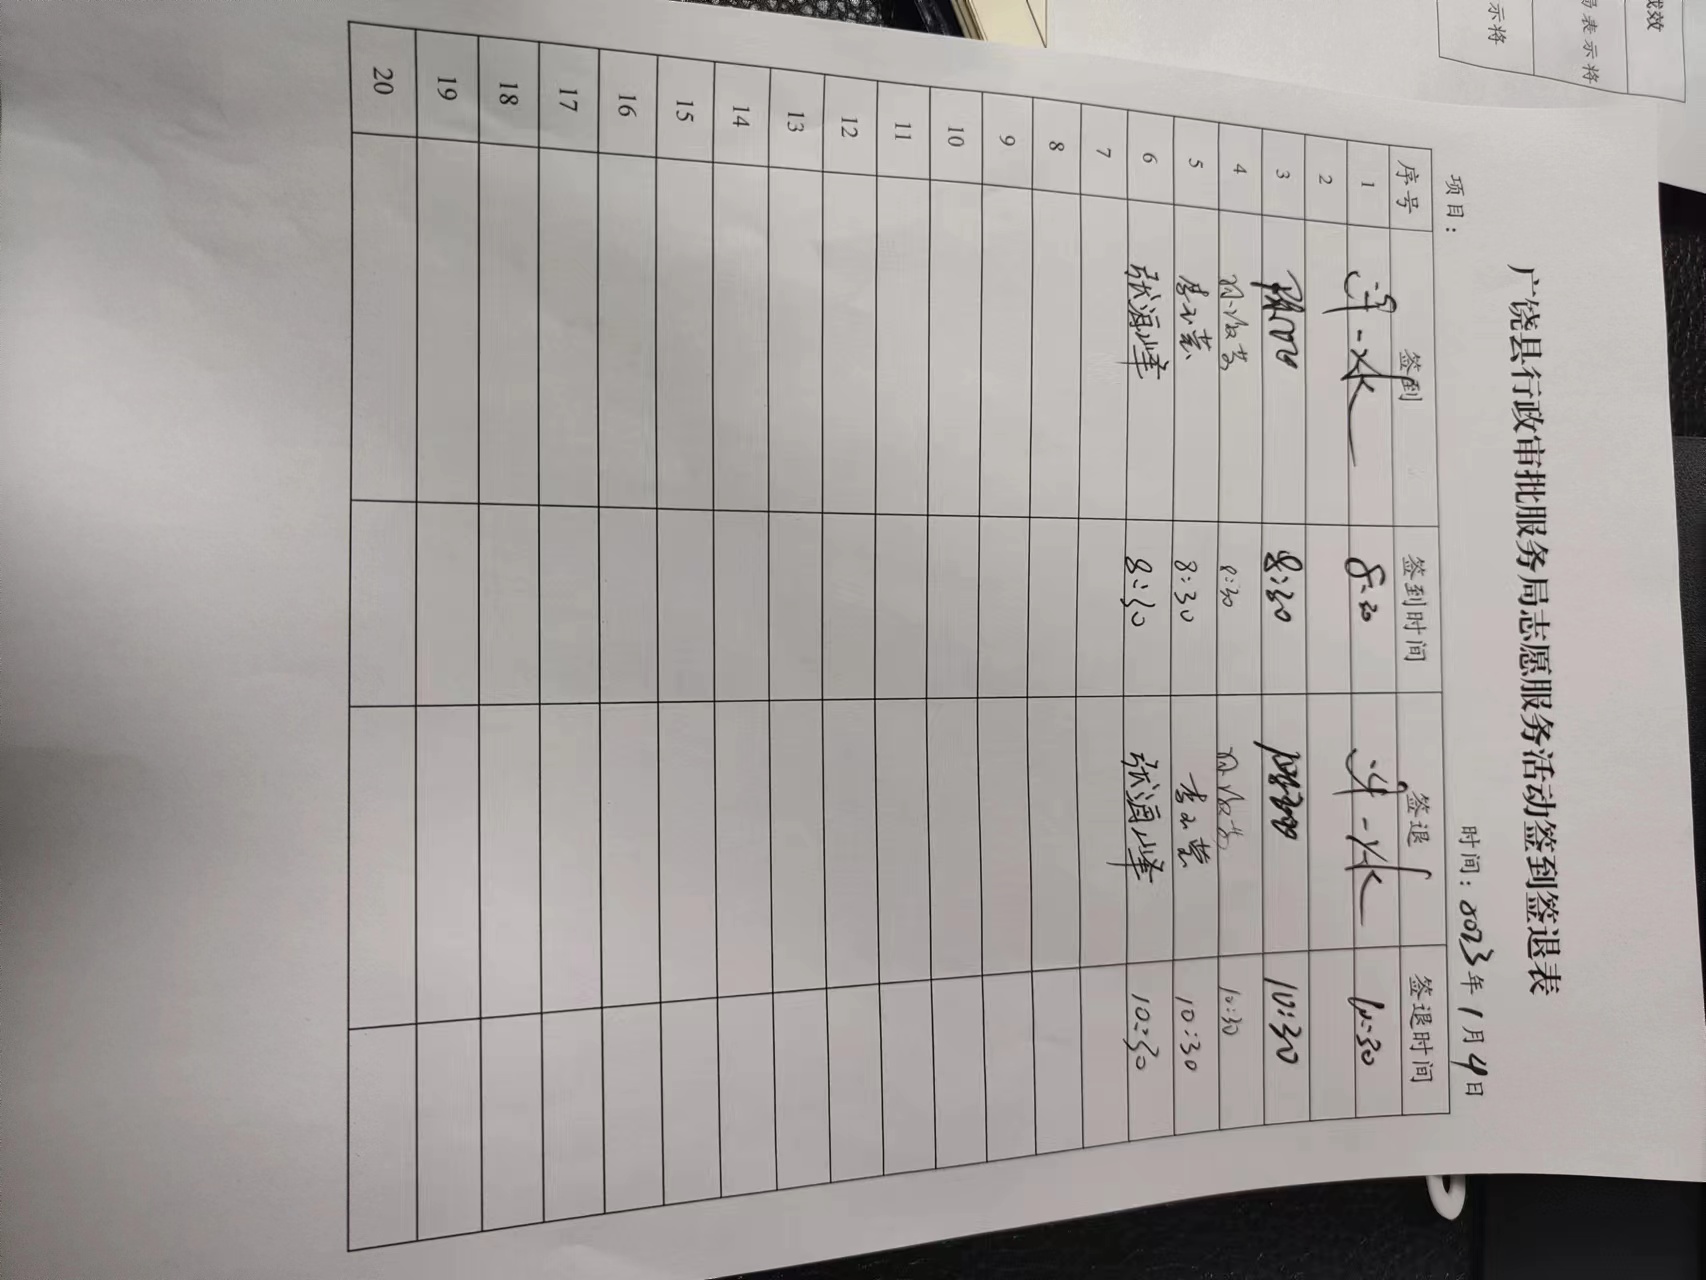 广饶县行政审批服务局志愿服务活动签到签退表
项目： 时间：2023年1月4日
序号 签到 签到时间 签退 签退时间
1 8:30 10:30
2
3 8:30 10:30
4 8:30 10:30
5 8:30 10:30
6 张海峰 8:30 张海峰 10:30
7
8
9
10
11
12
13
14
15
16
17
18
19
20
成效
易表示将
示将